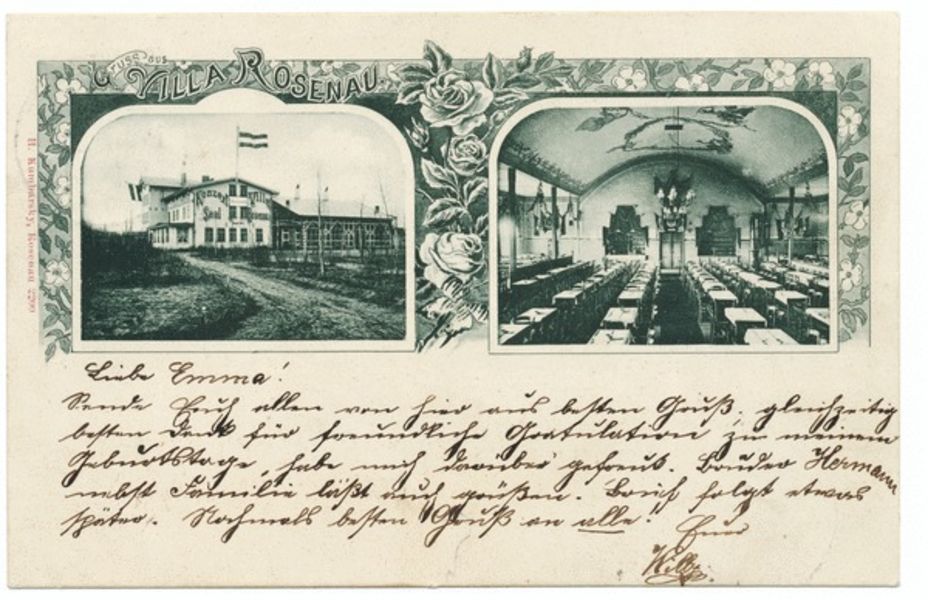 Gruss aus
VILLA ROSENAU.
Konzert
Saal
H. Kumbartzky, Rosenau 2299
Liebe Emma!
Sende Euch allen von hier aus besten Gruß, gleichzeitig
besten Dank für freundliche Gratulation zu meinem
Geburtstage, habe mich darüber gefreut. Bruder Hermann
nebst Familie läßt auch grüßen. Brief folgt etwas
später. Nochmals besten Gruß an alle!
Euer
Willy.